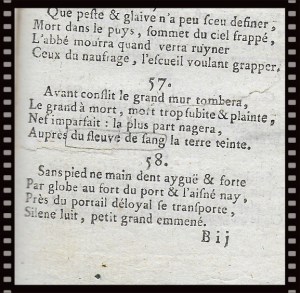 Que peste & glaive n'a peu sceu definer,
Mort dans le puys, sommet du ciel frappé,
L'abbé mourra quand verra ruyner
Ceux du naufrage, l'escueil voulant grapper.
57.
Avant conflit le grand mur tombera,
Le grand à mort, mort trop subite & plainte,
Nef imparfait : la plus part nagera,
Aupres du fleuve de sang la terre teinte.
58.
Sans pied ne main dent ayguë & forte
Par globe au fort du port & l'aisné nay,
Près du portail déloyal se transporte,
Silene luit, petit grand emmené.
B ij